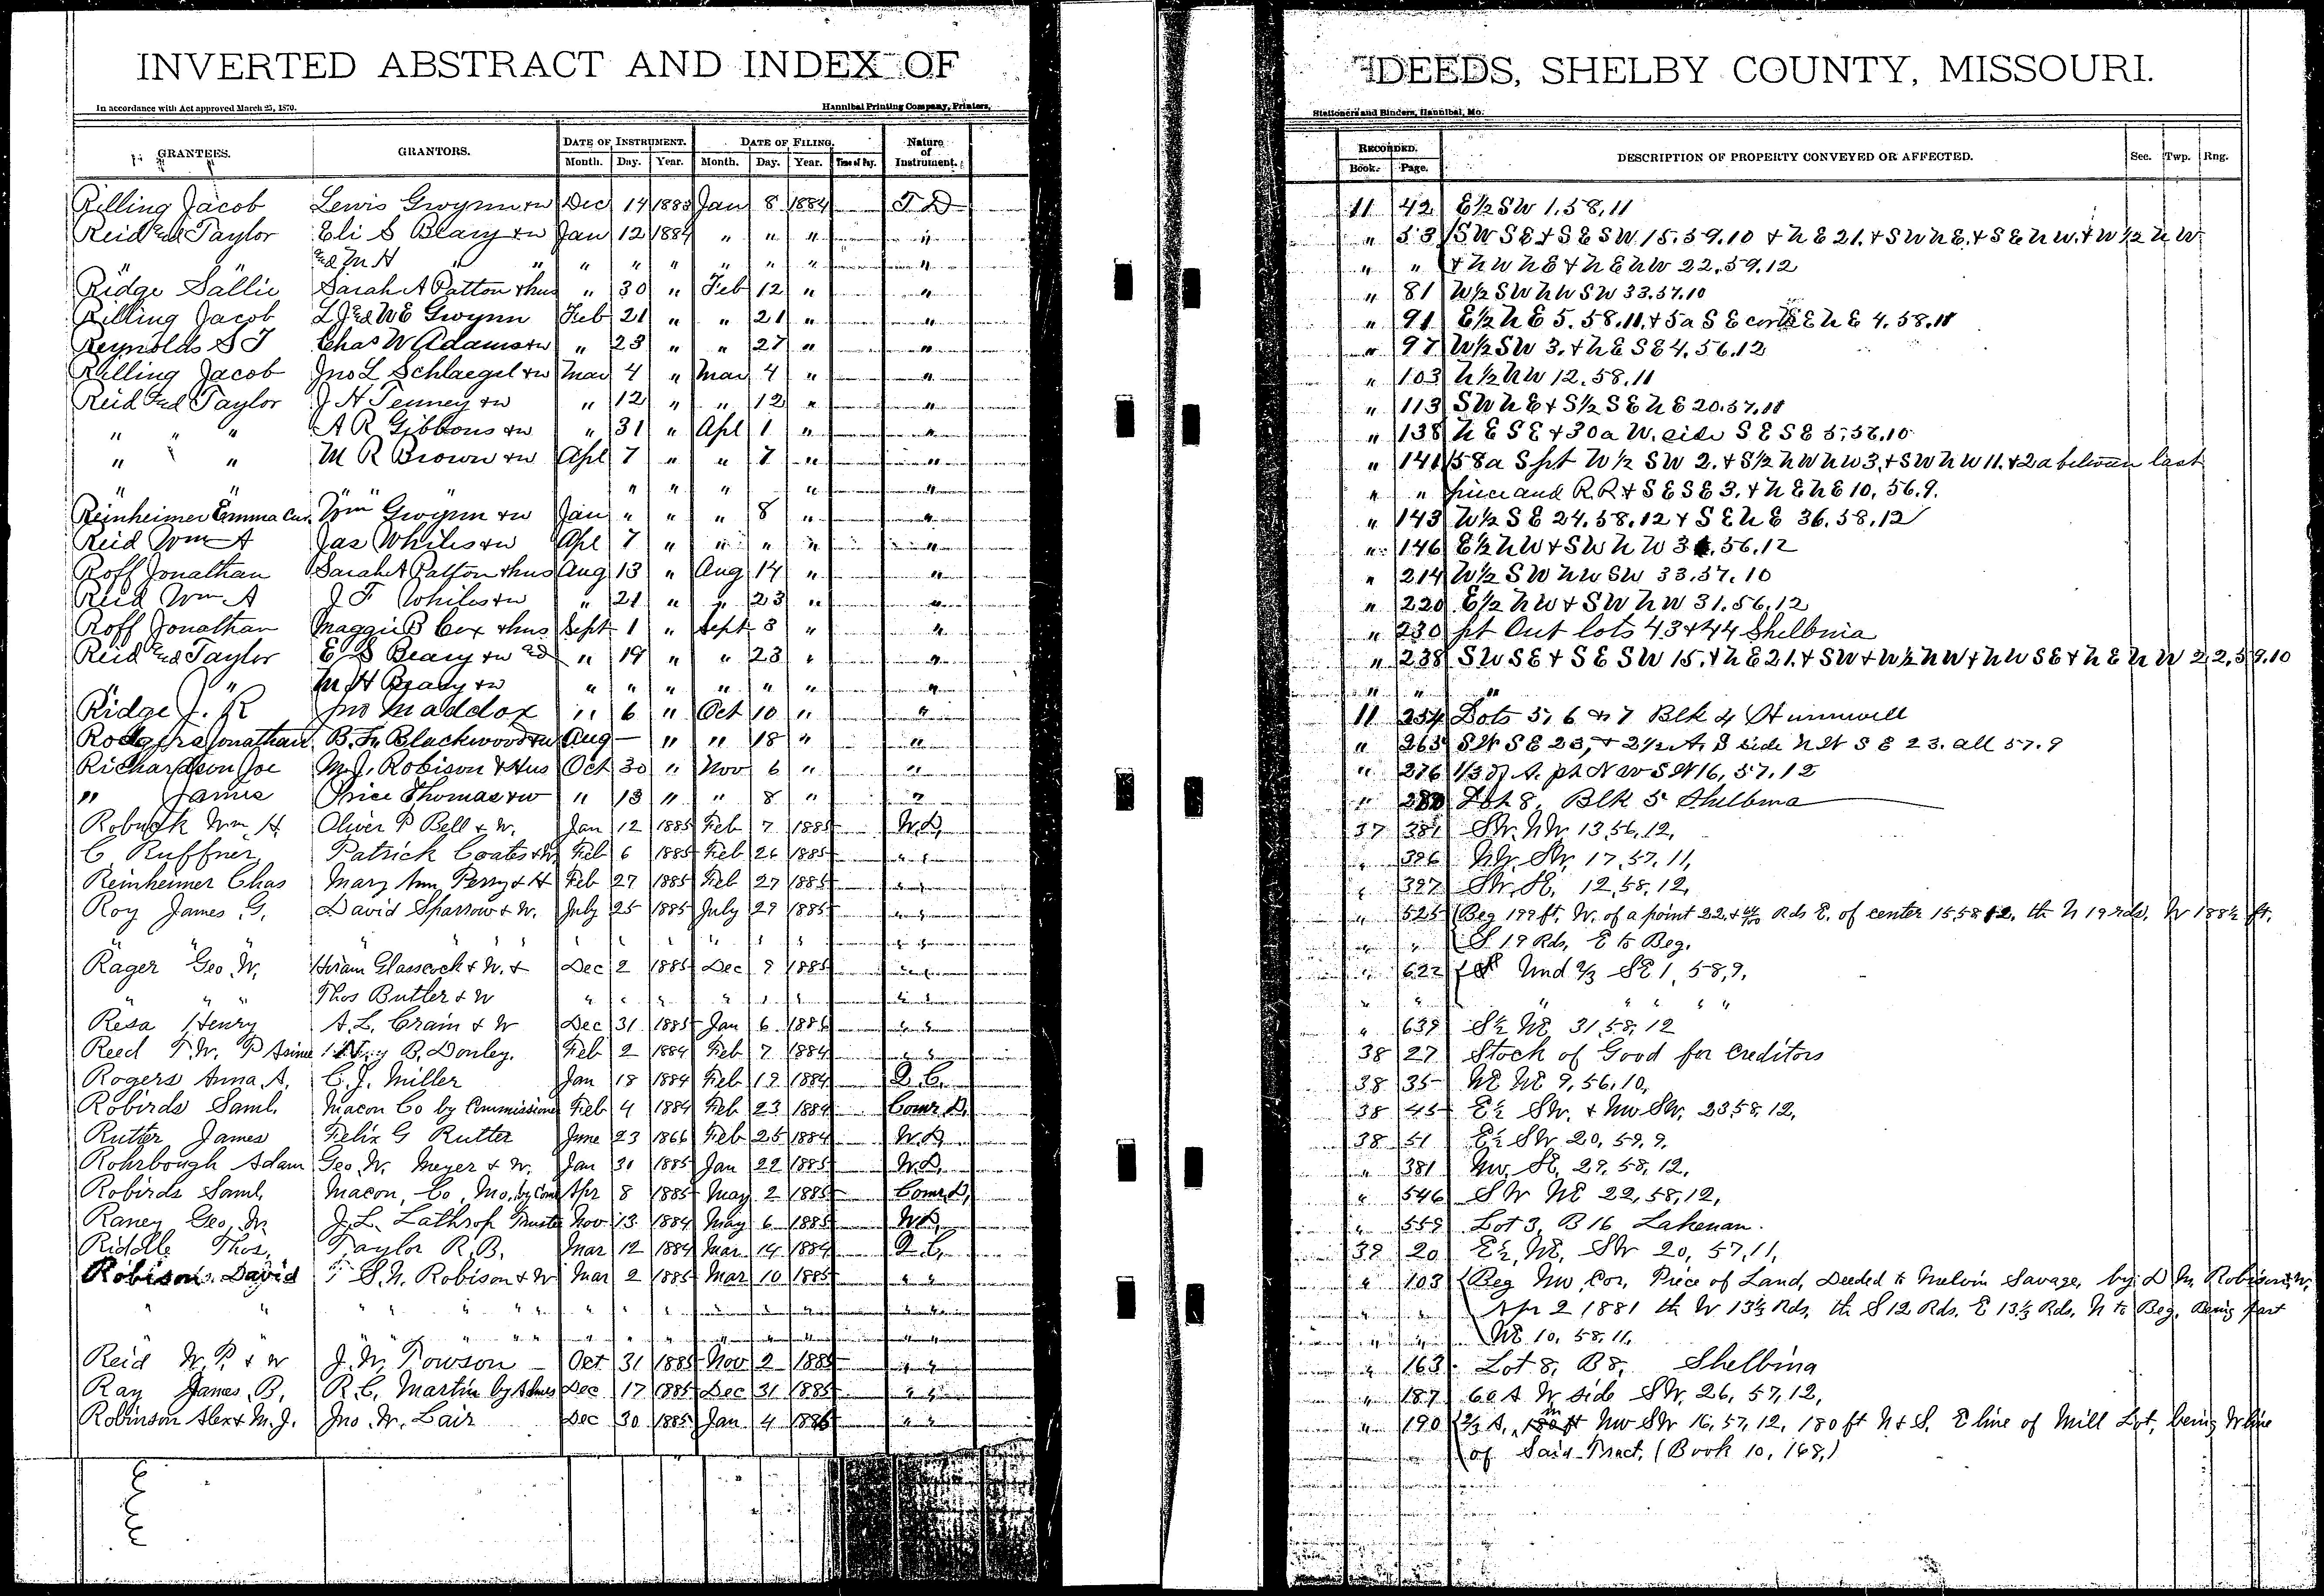 INVERTED ABSTRACT AND INDEX OF DEEDS, SHELBY COUNTY, MISSOURI.
In accordance with Act approved March 25, 1870. Hannibal Printing Company, Printers, Stationers and Binders, Hannibal, Mo.
GRANTEES. GRANTORS. DATE OF INSTRUMENT. DATE OF FILING. Nature of Instrument. RECORDED. DESCRIPTION OF PROPERTY CONVEYED OR AFFECTED. Sec. Twp. Rng.
Month. Day. Year. Month. Day. Year. Time of Day. Book. Page.
Rilling Jacob Lewis Gwynn & w Dec 14 1883 Jan 8 1884 T D 11 42 E 1/2 SW 1.58.11
Reid Ed Taylor Eli S Beary & w Jan 12 1884 " " " " " 53 SW SE & SE SW 15.59.10 & N E 21. & SW N E. & S E N W. & W 1/2 N W
" " & M H " " " " " " " " " " " & N W N E & N E N W 22.59.12
Ridge Sallie Sarah A Patton & hus " 30 " Feb 12 " " " 81 W 1/2 SW N W SW 33.57.10
Rilling Jacob L J & W E Gwynn Feb 21 " " 21 " " " 91 E 1/2 N E 5.58.11. & 5a S E cor S E N E 4.58.11
Reynolds S T Chas W Adams & w " 23 " " 27 " " " 97 W 1/2 SW 3. & N E S E 4.56.12
Rilling Jacob Jno L Schlaegel & w Mar 4 " Mar 4 " " " 103 N 1/2 N W 12.58.11
Reid Ed Taylor J H Tenney & w " 12 " " 12 " " " 113 SW N E & S 1/2 S E N E 20.57.11
" " " A R Gibbons & w " 31 " Apl 1 " " " 138 N E S E & 30a W. side S E S E 5.56.10
" " M R Brown & w Apl 7 " " 7 " " " 141 58a S pt W 1/2 SW 2. & S 1/2 N W N W 3. & SW N W 11. & 2a between last
" " " " " " " " " " piece and R.R & S E S E 3. & N E N E 10, 56.9.
Reinheimer Emma Cur. Wm Gwynn & w Jan " " " 8 " " " 143 W 1/2 S E 24.58.12 & S E N E 36.58.12
Reid Wm A Jas Whiles & w Apl 7 " " " " " " 146 E 1/2 N W & SW N W 31.56.12
Roff Jonathan Sarah A Patton & hus Aug 13 " Aug 14 " " " 214 W 1/2 SW N W SW 33.57.10
Reid Wm A J F Whiles & w " 21 " " 23 " " " 220 E 1/2 N W & SW N W 31.56.12
Roff Jonathan Maggie B Cox & hus Sept 1 " Sept 3 " " " 230 pt Out lots 43 & 44 Shelbina
Reid Ed Taylor E S Beary & w & " 19 " " 23 " " " 238 SW SE & S E SW 15. & N E 21. & SW & W 1/2 N W & N W S E & N E N W 22.59.10
" " M H Beary & w " " " " " " " " " "
Ridge J. R Jno Maddox " 6 " Oct 10 " " 11 254 Lots 5, 6 & 7 Blk 4 Hunnewell
Rodgers Jonathan B. F. Blackwood & w Aug — " " 18 " " " 263 SW SE 23, & 2 1/2 A. S side N W S E 23. all 57.9
Richardson Joe M. J. Robison & Hus Oct 30 " Nov 6 " " " 276 1/3 of A. pt N W SW 16, 57.12
" James Price Thomas & w " 13 " " 8 " " " 280 Lot 8, Blk 5 Shelbina
Robuck Wm. H Oliver P Bell & W. Jan 12 1885 Feb 7 1885 W.D. 37 381 SW. NW. 13,56,12,
C Ruffner Patrick Coates & W Feb 6 1885 Feb 26 1885 " " " 396 NW. SW. 17,57,11,
Reinheimer Chas Mary Ann Perry & H Feb 27 1885 Feb 27 1885 " " " 397 SW. SE. 12,58,12,
Roy James G. David Sparrow & W. July 25 1885 July 29 1885 " " " 525 Beg 199 ft. W. of a point 22 Rds E. of center 15,58,12, th N 19 rds. W 188 1/2 ft.
" " " " " " " " " " " " " " " " S 19 Rds, E to Beg.
Rager Geo. W. Hiram Glasscock & W. & Dec 2 1885 Dec 9 1885 " " " 622 Und 2/3 SE 1, 58,9,
" " " Thos Butler & W " " " " " " " " " " " " " "
Resa Henry A. L. Crain & W Dec 31 1885 Jan 6 1886 " " " 639 S 1/2 NE 31,58,12
Reed T. W. B. Donley. Feb 2 1884 Feb 7 1884 " " 38 27 Stock of Good for Creditors
Rogers Anna A. C. J. Miller Jan 18 1884 Feb 19 1884 Q. C. 38 35 NE NE 9,56,10,
Robirds Saml. Macon Co by Commissione Feb 4 1884 Feb 23 1884 Comr D. 38 45 E 1/2 SW. & NW SW. 23,58,12,
Rutter James Felix G Rutter June 23 1866 Feb 25 1884 W.D. 38 51 E 1/2 SW 20,59,9,
Rohrbough Adam Geo. W. Meyer & W. Jan 31 1885 Jan 22 1885 W.D. " 381 NW. SE. 29,58,12.
Robirds Saml. Macon, Co, Mo. by Com Apr 8 1885 May 2 1885 Comr.D. " 546 SW NE 22,58,12,
Raney Geo, W. J. L. Lathrop Trustee Nov 13 1884 May 6 1885 W.D. " 559 Lot 3, B 16 Lakenan.
Riddle Thos. Taylor R. B. Mar 12 1884 Mar 14 1884 Q. C. 39 20 E 1/2, NE, SW 20, 57,11,
Robison, David S. N. Robison & W Mar 2 1885 Mar 10 1885 " " " 103 Beg NW. Cor. Piece of Land, Deeded to Melvin Savage, by D. M. Robison & W.
" " " " " " " " " " " " " " " " " Apr 2 1881 th W 13 1/3 Rds, th S 12 Rds. E 13 1/3 Rds, N to Beg. Being part
" " " " " " " " " " " " " " NE 10, 58,11,
Reid W. P. & W J. W. Towson Oct 31 1885 Nov 2 1885 " " " 163 Lot 8, B 8, Shelbina
Ray James B. R. C. Martin by Admr Dec 17 1885 Dec 31 1885 " " " 187 60 A W side SW. 26, 57,12,
Robinson Alex & M. J. Jno. W. Lair Dec 30 1885 Jan 4 1886 " " " 190 2/3 A, in NW SW 16, 57, 12, 180 ft N & S. E line of Mill Lot, being W line
of Said Tract, (Book 10, 168,)